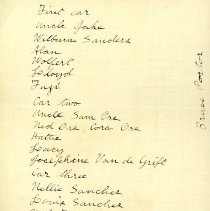 First car
Uncle Jake
Wilburn Sanders
Alan
Wolfert
Lloyd
Car two
Uncle Sam Ore
Ned Ore Cora Ore
Hattie
Lacy
Josephine Van de Grift
Car three
Nellie Sanches
Louis Sanches
Bruce Proctor